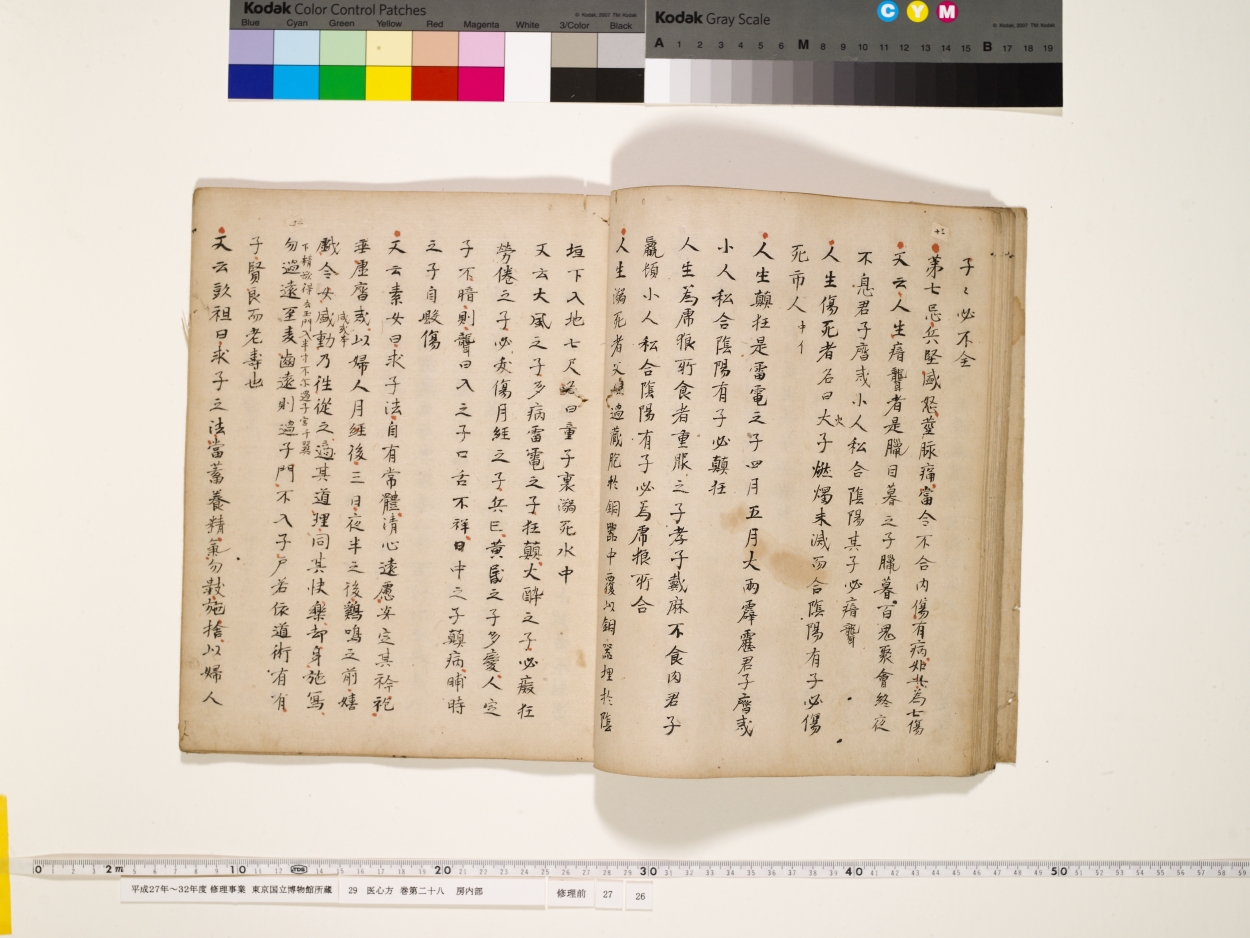 Kodak Color Control Patches
© Kodak, 2007 TM: Kodak
Blue Cyan Green Yellow Red Magenta White 3/Color Black
Kodak Gray Scale
C Y M
© Kodak, 2007 TM: Kodak
A 1 2 3 4 5 6 M 8 9 10 11 12 13 14 15 B 17 18 19
子〻必不全
第七忌兵堅盛怒莖脉痛當令不合内傷有病如此為七傷
又云人生瘖聾者是臘日暮之子臘暮百鬼聚會終夜
不息君子齋戒小人私合陰陽其子必瘖聾
人生傷死者名曰火子燃燭未滅而合陰陽有子必傷
死市人
人生顛狂是雷電之子四月五月大雨霹靂君子齋戒
小人私合陰陽有子必顛狂
人生為虎狼所食者重服之子孝子戴麻不食肉君子
羸頓小人私合陰陽有子必為虎狼所食
人生溺死者父母過藏胞於銅器中覆以銅器埋於陰
垣下入地七尺名曰童子裏溺死水中
又云大風之子多病雷電之子狂顛大醉之子必癡狂
勞倦之子必夭傷月經之子兵亡黄昏之子多變人定
子不暗則聾日入之子口舌不祥日中之子顛病晡時
之子自毀傷
又云素女曰求子法自有常體清心遠慮安定其衿袍
垂虛齋戒以婦人月經後三日夜半之後鷄鳴之前嬉
戲令女盛動乃往從之適其道理同其快樂却身施寫
勿過遠至麦齒遠則過子門不入子戸若依道術有有
子賢良而老壽也
又云彭祖曰求子之法當蓄養精氣勿數施捨以婦人
0 2m 10 20 30 40 50
平成27年～32年度 修理事業 東京国立博物館所蔵 29 医心方 巻第二十八 房内部 修理前 27 26